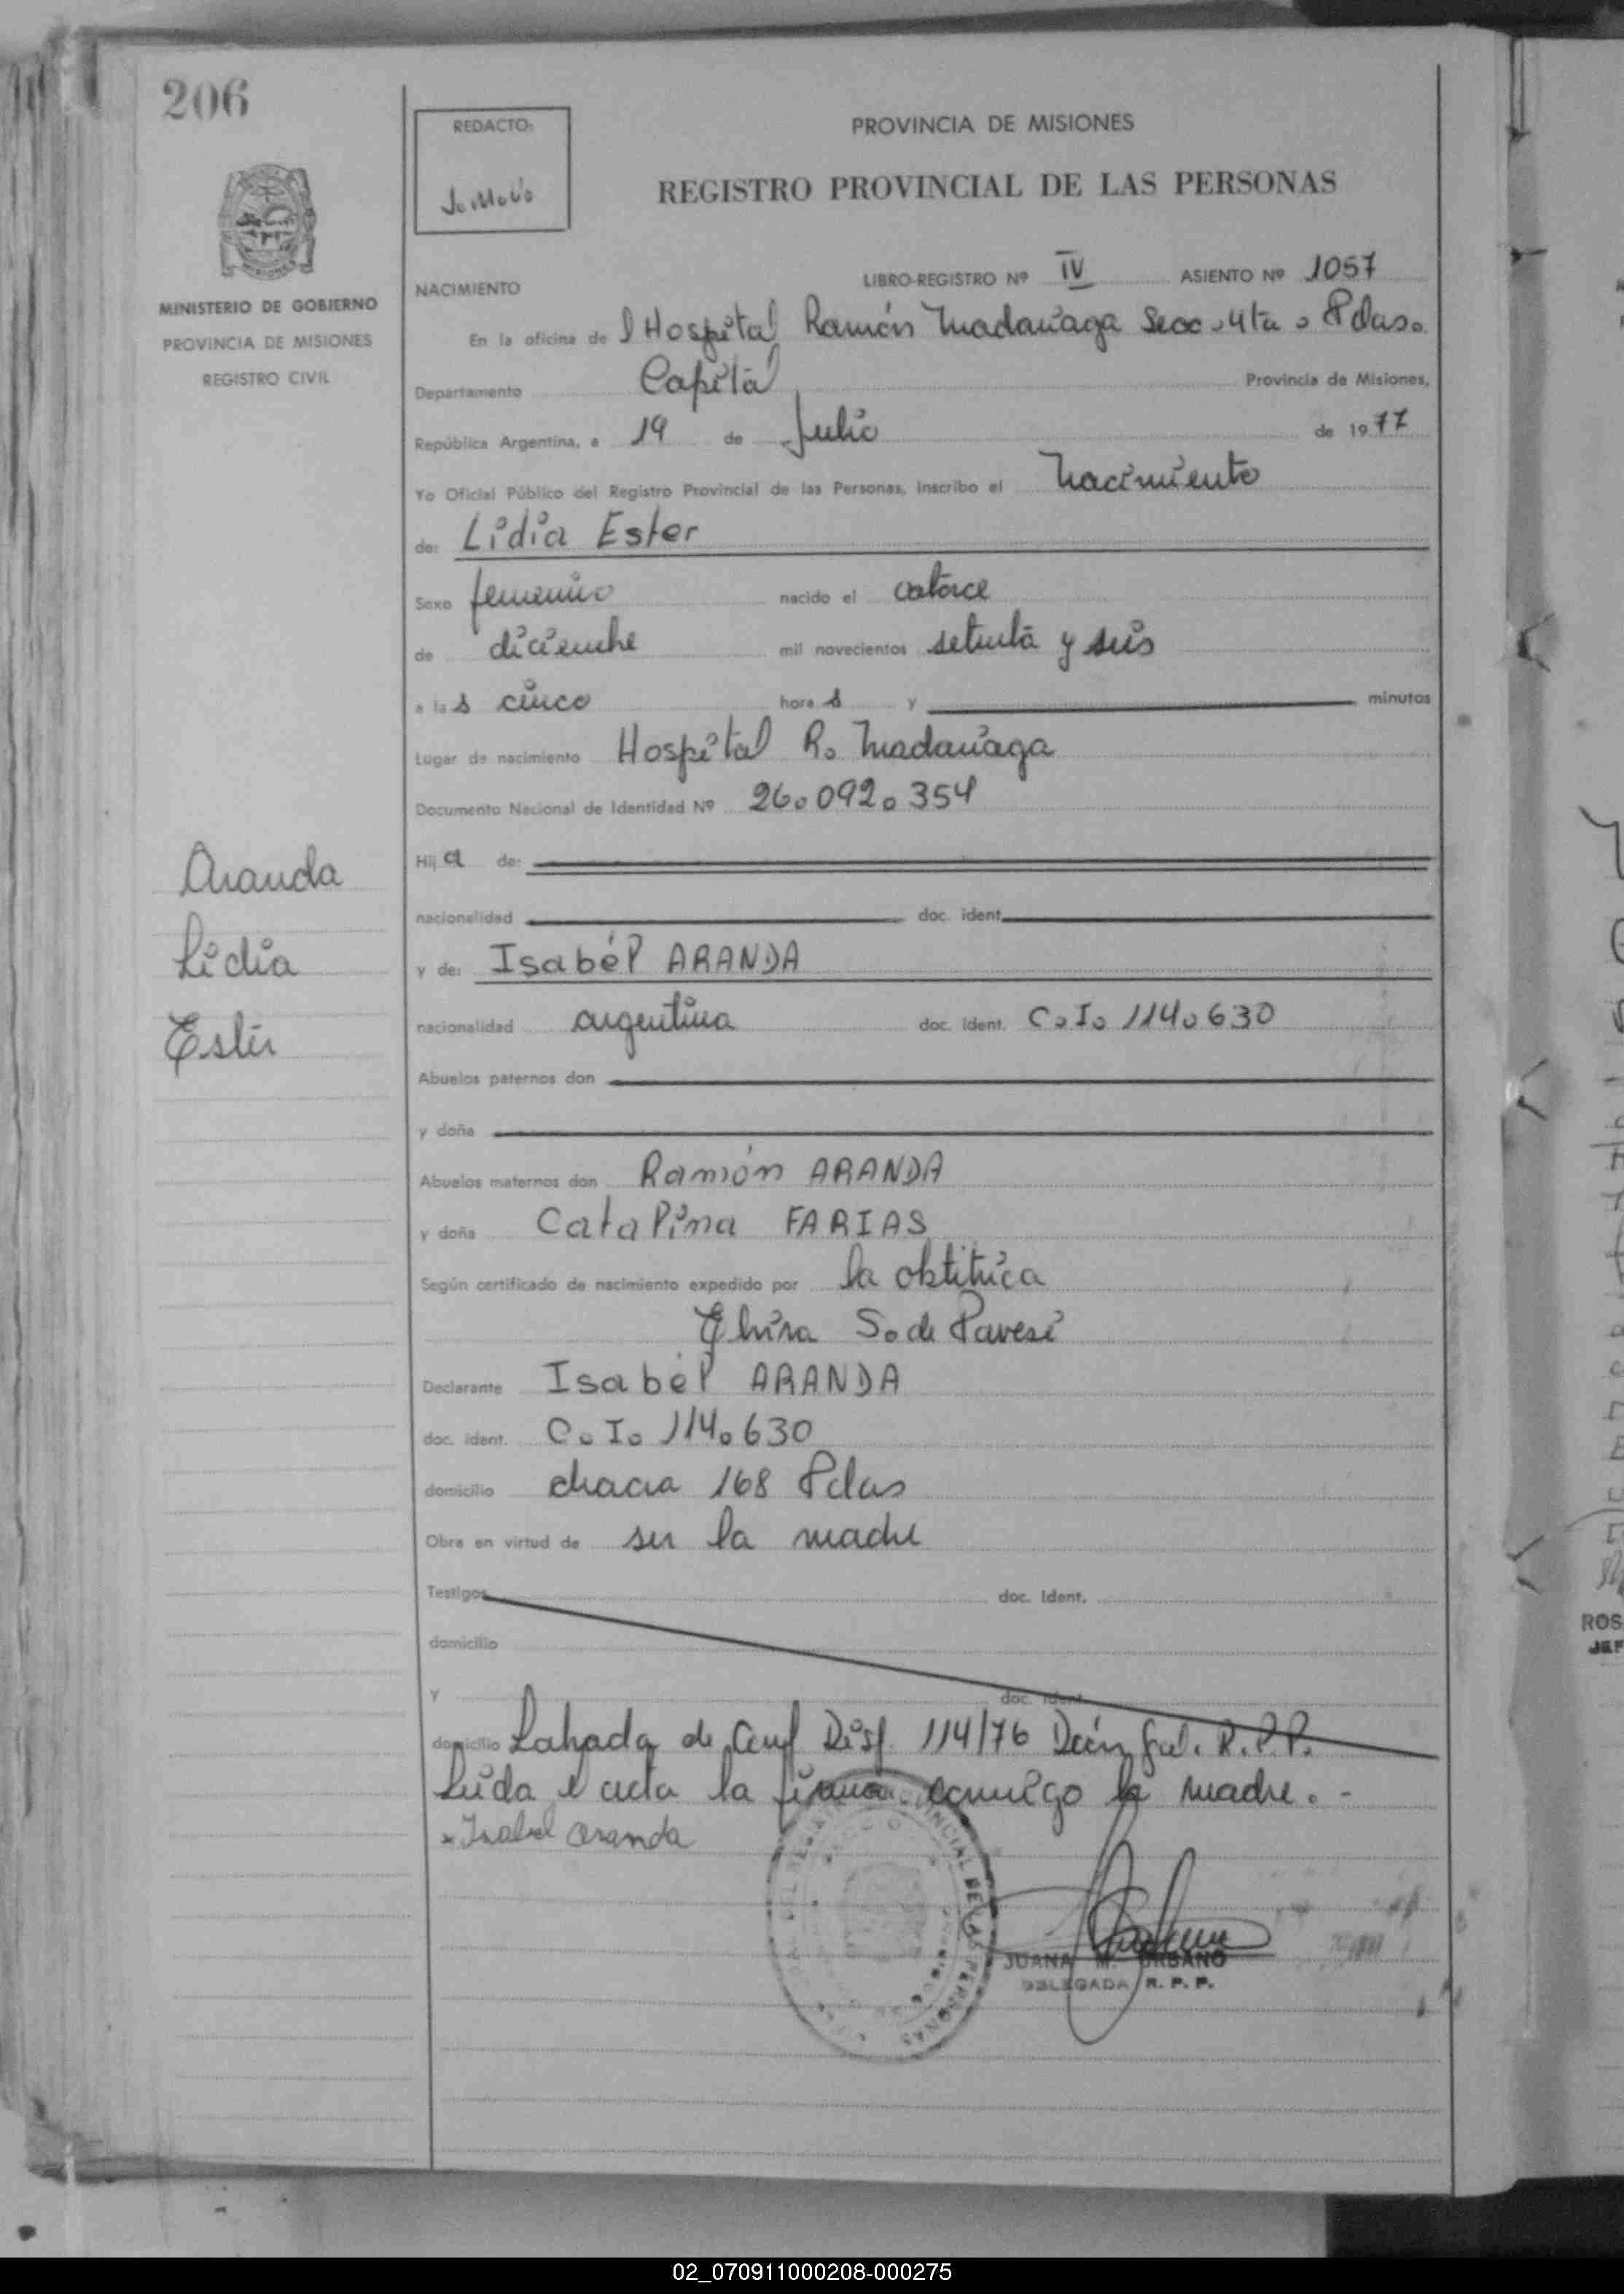 206
REDACTO:
PROVINCIA DE MISIONES
REGISTRO PROVINCIAL DE LAS PERSONAS
MISIONES
MINISTERIO DE GOBIERNO
PROVINCIA DE MISIONES
REGISTRO CIVIL
NACIMIENTO LIBRO-REGISTRO Nº IV ASIENTO Nº 1057
En la oficina de l Hospital Ramón Madariaga Secc. 4ta. Pdas.
Departamento Capital Provincia de Misiones,
República Argentina, a 19 de Julio de 1977
Yo Oficial Público del Registro Provincial de las Personas, inscribo el Nacimiento
de: Lidia Ester
Sexo femenino nacido el catorce
de diciembre mil novecientos setenta y seis
a las cinco horas y minutos
Lugar de nacimiento Hospital R. Madariaga
Documento Nacional de Identidad Nº 26.092.354
Hija de:
nacionalidad doc. ident.
y de: Isabél ARANDA
nacionalidad argentina doc. ident. C.I. 114.630
Abuelos paternos don
y doña
Abuelos maternos don Ramón ARANDA
y doña Catalina FARIAS
Según certificado de nacimiento expedido por la obtitrica
Elvira S. de Pavesi
Declarante Isabél ARANDA
doc. ident. C.I. 114.630
domicilio chacra 168 Pdas
Obra en virtud de ser la madre
Testigos doc. Ident.
domicilio
y doc. ident.
domicilio Labrada de Conf Disp. 114/76 Dción Gral. R.P.P.
Leida el acta la firma conmigo la madre. -
Isabel Aranda
JUANA M. URBANO
DELEGADA R. P. P.
PROVINCIAL DE LAS PERSONAS
Aranda
Lidia
Ester
ROS
JEF
02_070911000208-000275